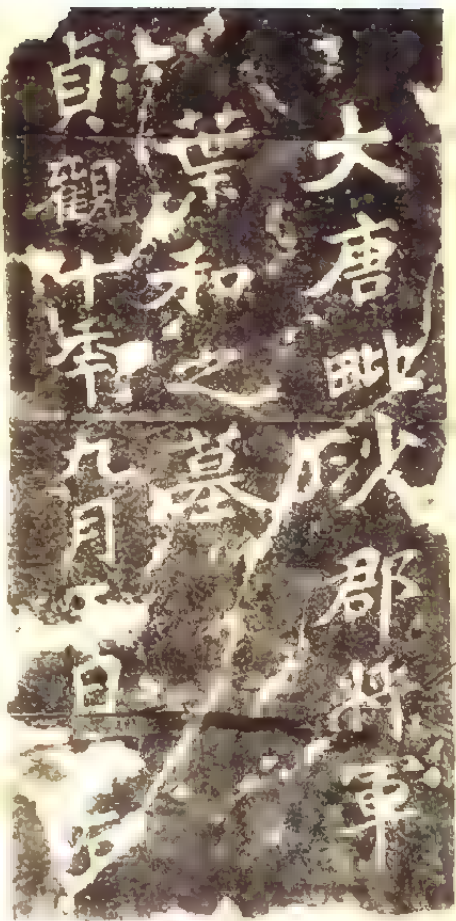 大唐毗沙郡將軍
葉和之墓
貞觀十年九月日